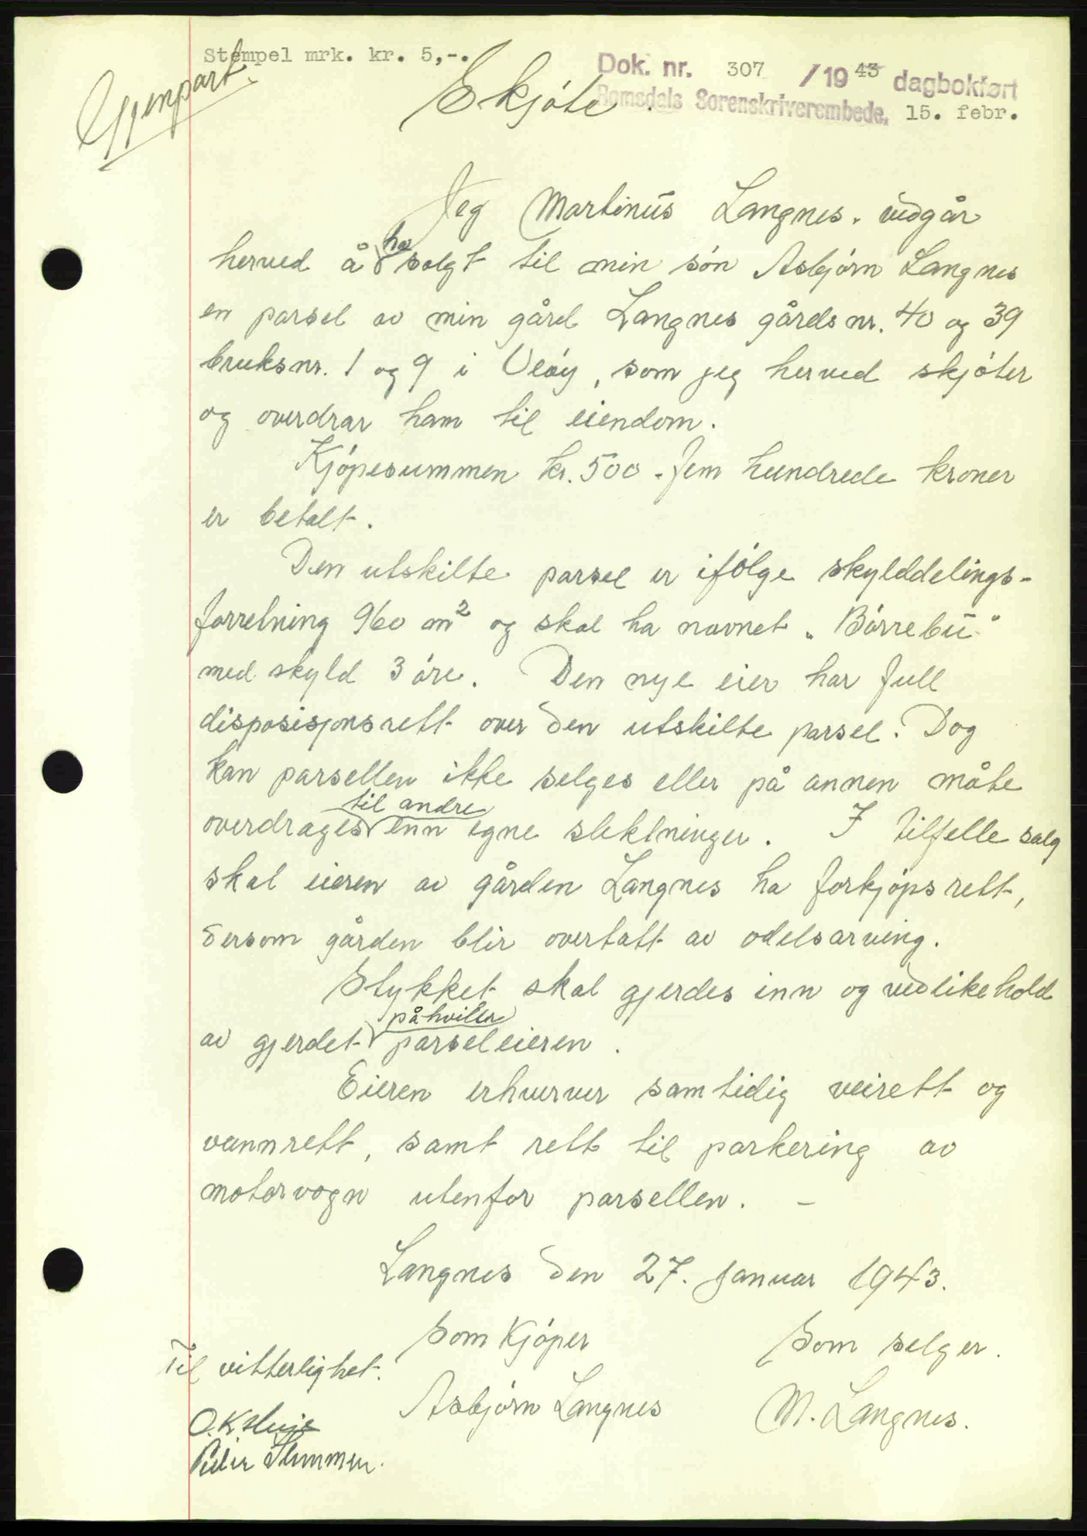 Stempel mrk. kr. 5,-.
Gjenpart.
Dok. nr. 307 /1943 dagbokført
Romsdals Sorenskriverembede, 15. febr.
Skjöte.
Jeg Martinus Langnes. vedgår
herved å ha solgt til min sön Asbjörn Langnes
en parsel av min gård Langnes gårds nr. 40 og 39
bruksnr. 1 og 9 i Veöy, som jeg herved skjöter
og overdrar ham til eiendom.
Kjöpesummen kr. 500 - fem hundrede kroner
er betalt.
Den utskilte parsel er ifölge skylddelings-
forretning 960 m² og skal ha navnet „Börrebu"
med skyld 3 öre. Den nye eier har full
disposisjonsrett over den utskilte parsel. Dog
kan parsellen ikke selges eller på annen måte
overdrages til andre enn egne slektninger. I tilfelle salg
skal eieren av gården Langnes ha forkjöpsrett,
dersom gården blir overtatt av odelsarving.
Stykket skal gjerdes inn og vedlikehold
av gjerdet påhviler parseleieren.
Eieren erhverver samtidig veirett og
vannrett, samt rett til parkering av
motorvogn utenfor parsellen. -
Langnes den 27. januar 1943.
Som Kjöper
Som selger.
Til vitterlighet.
Asbjörn Langnes
M. Langnes.
O. K.
Peder